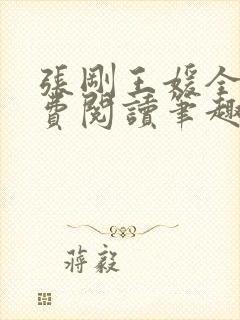 張剛王媛全
費閱讀筆趣
蔣毅